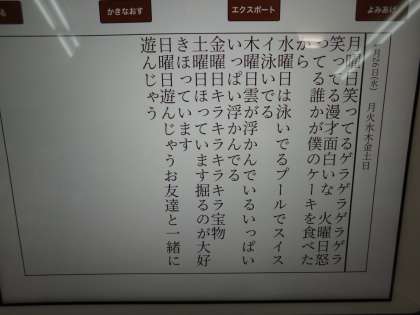 かきなおす
エクスポート
よみあげ
月火水木金土日
月曜日笑ってるゲラゲラゲラゲラ
笑ってる漫才面白いな　火曜日怒
ってる誰かが僕のケーキを食べた
から
水曜日は泳いでるプールでスイス
イ泳いでる
木曜日雲が浮かんでいるいっぱい
いっぱい浮かんでる
金曜日キラキラキラキラ宝物
土曜日ほっています掘るのが大好
きほっています
日曜日遊んじゃうお友達と一緒に
遊んじゃう